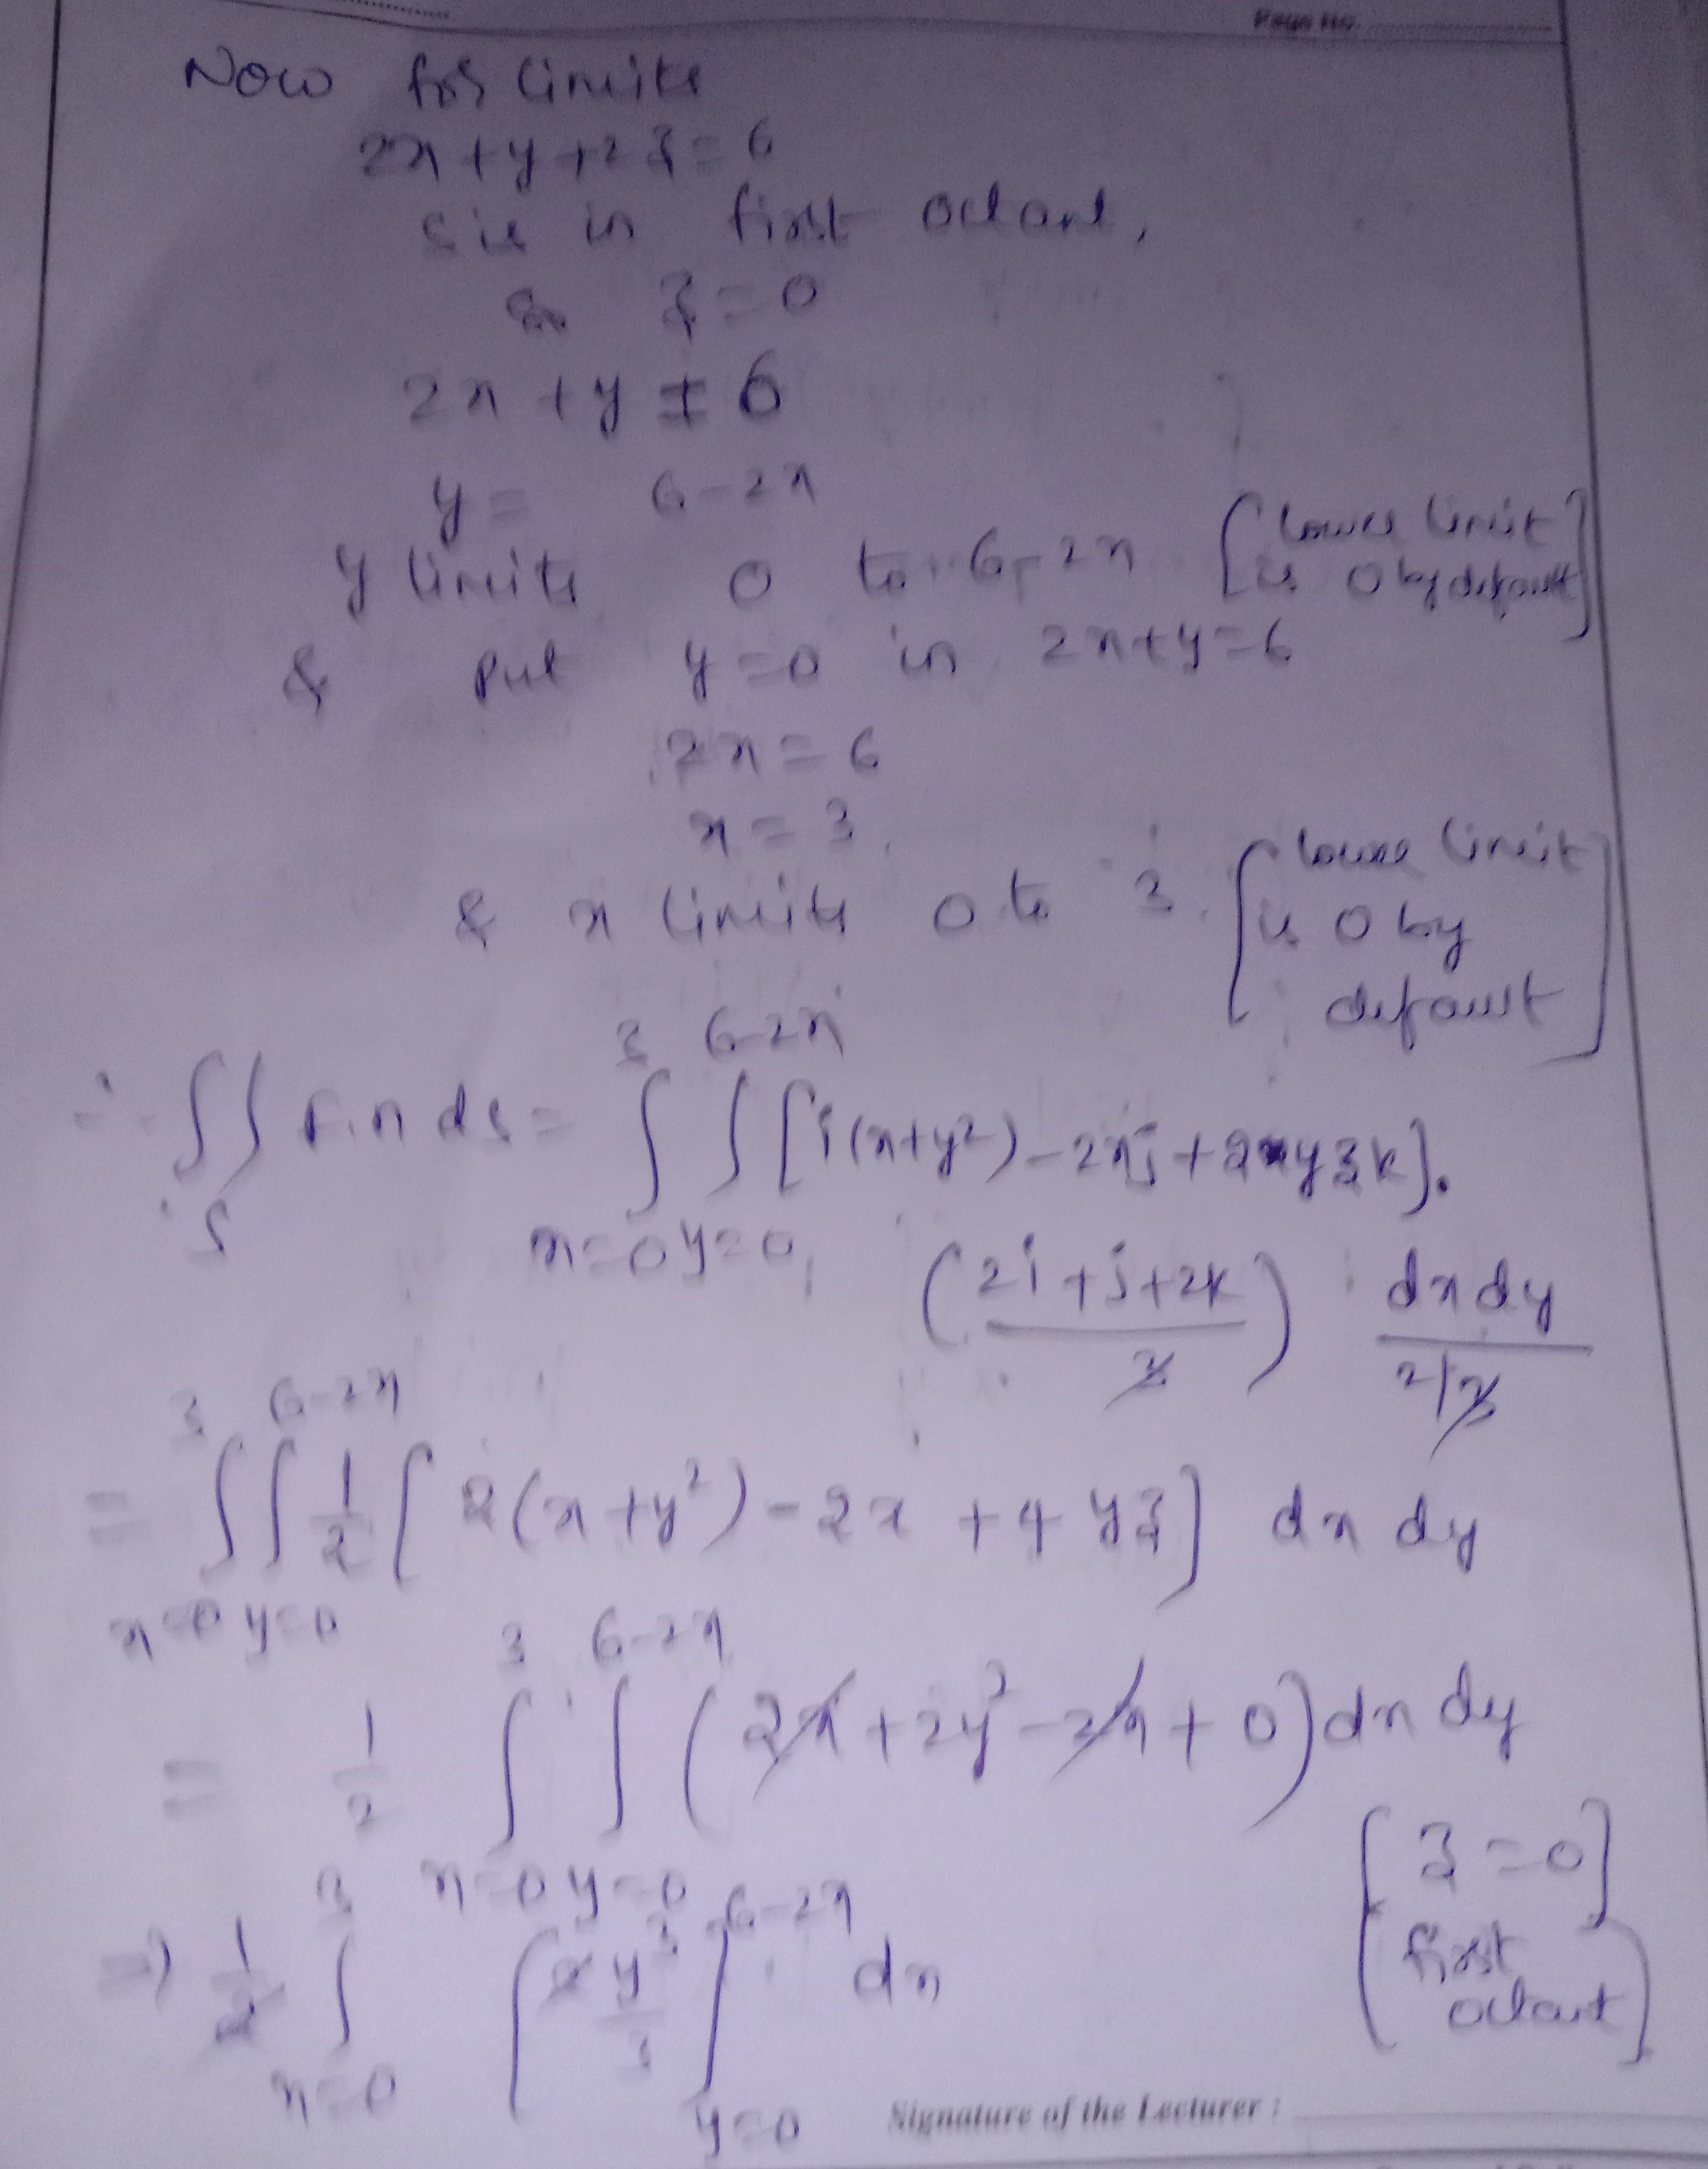 Page No
Now for limits
2x + y + 2z = 6
S is in first octant,
so z = 0
2x + y = 6
y = 6 - 2x
y limits 0 to 6 - 2x [lower limit is 0 by default]
& put y = 0 in 2x + y = 6
2x = 6
x = 3
& x limits 0 to 3. [lower limit is 0 by default]
∴ ∫∫_S F.n ds = ∫_{x=0}^{3} ∫_{y=0}^{6-2x} [i(x+y²) - 2xj + 2yzk].
(2i + j + 2k / 3) dx dy / 2/3
= ∫_{x=0}^{3} ∫_{y=0}^{6-2x} 1/2 [2(x+y²) - 2x + 4yz] dx dy
= 1/2 ∫_{x=0}^{3} ∫_{y=0}^{6-2x} (2x + 2y² - 2x + 0) dx dy
[z = 0] first octant
⇒ 1/2 ∫_{x=0}^{3} [2y³/3]_{y=0}^{6-2x} dx
Signature of the Lecturer :